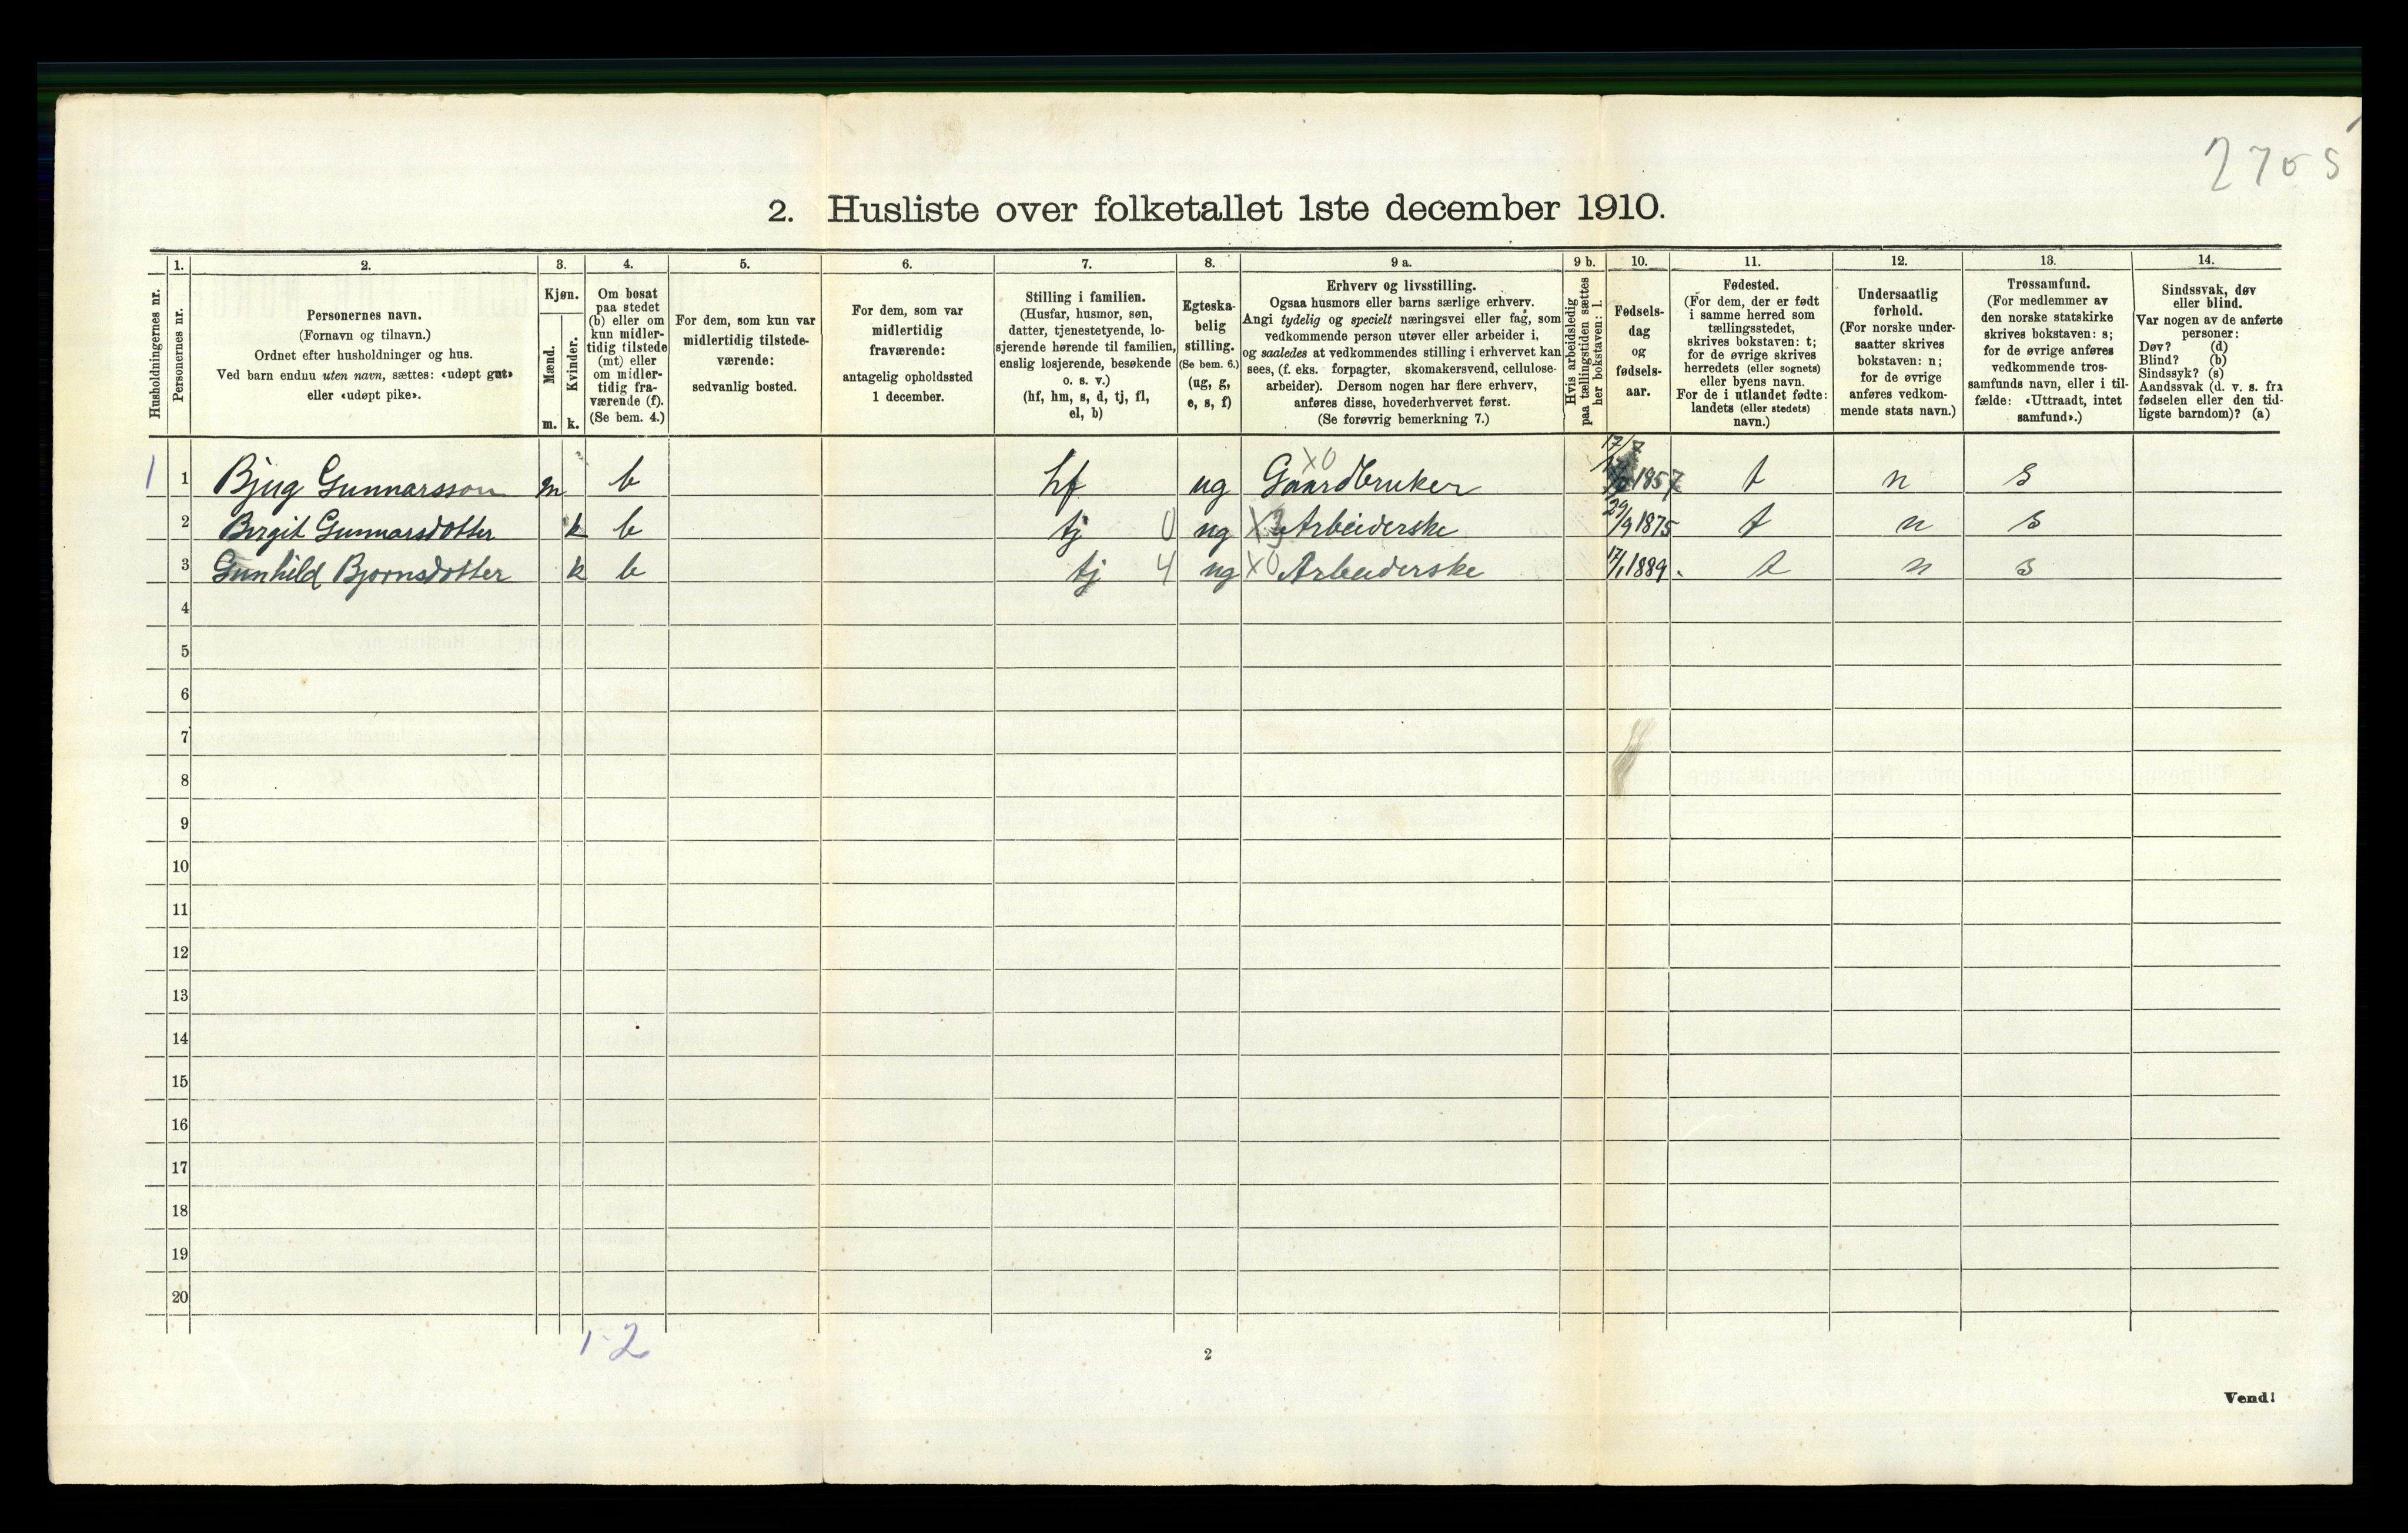 2705
2. Husliste over folketallet 1ste december 1910.
Husholdningernes nr.
1. Personernes nr.
2. Personernes navn.
(Fornavn og tilnavn.)
Ordnet efter husholdninger og hus.
Ved barn endnu uten navn, sættes: «udøpt gut»
eller «udøpt pike».
3. Kjøn.
Mænd. m.
Kvinder. k.
4. Om bosat
paa stedet
(b) eller om
kun midler-
tidig tilstede
(mt) eller
om midler-
tidig fra-
værende (f).
(Se bem. 4.)
5. For dem, som kun var
midlertidig tilstede-
værende:
sedvanlig bosted.
6. For dem, som var
midlertidig
fraværende:
antagelig opholdssted
1 december.
7. Stilling i familien.
(Husfar, husmor, søn,
datter, tjenestetyende, lo-
sjerende hørende til familien,
enslig losjerende, besøkende
o. s. v.)
(hf, hm, s, d, tj, fl,
el, b)
8. Egteska-
belig
stilling.
(Se bem. 6.)
(ug, g,
e, s, f)
9 a. Erhverv og livsstilling.
Ogsaa husmors eller barns særlige erhverv.
Angi tydelig og specielt næringsvei eller fag, som
vedkommende person utøver eller arbeider i,
og saaledes at vedkommendes stilling i erhvervet kan
sees, (f. eks. forpagter, skomakersvend, cellulose-
arbeider). Dersom nogen har flere erhverv,
anføres disse, hovederhvervet først.
(Se forøvrig bemerkning 7.)
9 b. Hvis arbeidsledig
paa tællingstiden sættes
her bokstaven: l.
10. Fødsels-
dag
og
fødsels-
aar.
11. Fødested.
(For dem, der er født
i samme herred som
tællingsstedet,
skrives bokstaven: t;
for de øvrige skrives
herredets (eller sognets)
eller byens navn.
For de i utlandet fødte:
landets (eller stedets)
navn.)
12. Undersaatlig
forhold.
(For norske under-
saatter skrives
bokstaven: n;
for de øvrige
anføres vedkom-
mende stats navn.)
13. Trossamfund.
(For medlemmer av
den norske statskirke
skrives bokstaven: s;
for de øvrige anføres
vedkommende tros-
samfunds navn, eller i til-
fælde: «Uttraadt, intet
samfund».)
14. Sindssvak, døv
eller blind.
Var nogen av de anførte
personer:
Døv? (d)
Blind? (b)
Sindssyk? (s)
Aandssvak (d. v. s. fra
fødselen eller den tid-
ligste barndom)? (a)
1 1 Bjug Gunnarsson m b hf ug X0 Gaardbruker 17/7 1857 t n s
2 Birgit Gunnarsdotter k b tj 0 ug X3 Arbeiderske 29/9 1875 t n s
3 Gunhild Bjornsdotter k b tj 4 ug X0 Arbeiderske 17/1 1889. t n s
4
5
6
7
8
9
10
11
12
13
14
15
16
17
18
19
20
1-2
2
Vend!